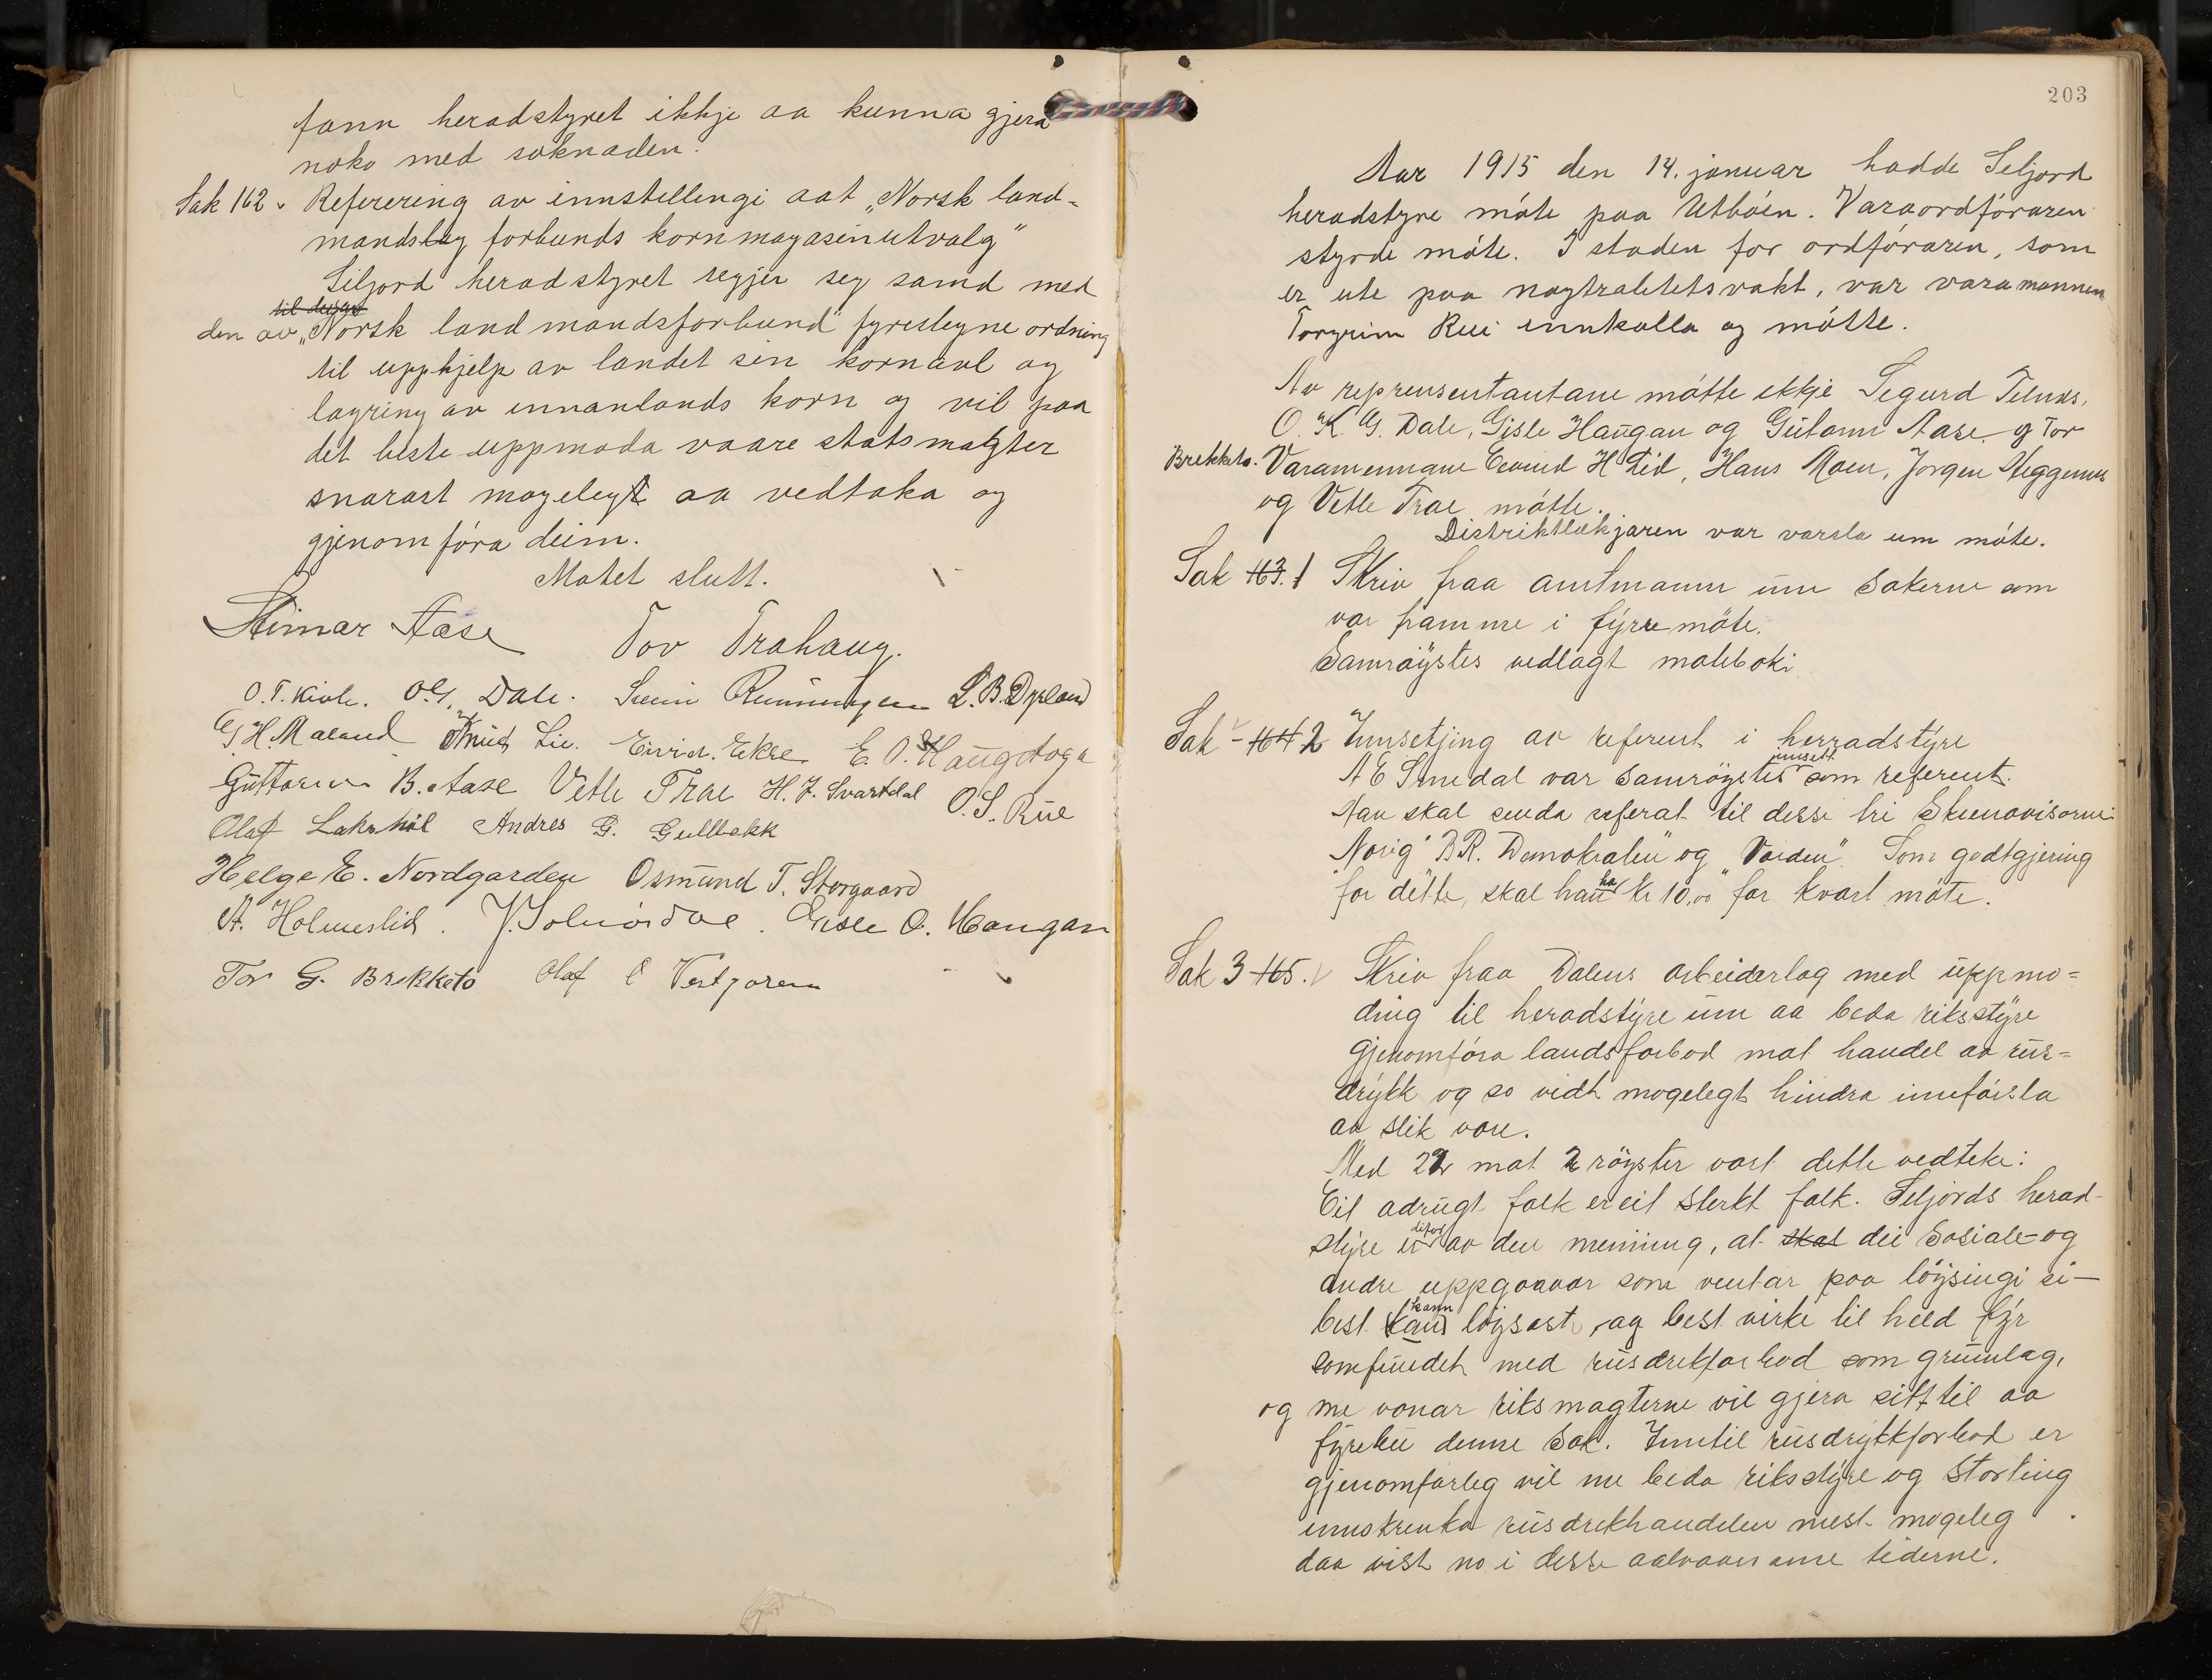 fann heradstyret ikkje aa kunna gjera
noko med søknaden.
Sak 162. Referering av innstellengi aat „Norsk land-
mandslag forbunds kornmagasinutvalg"
Seljord heradstyret segjer seg samd med
den av „Norsk landmandsforbund" fyreslegne ordning
til upphjelp av landet sin kornavl og
lagring av innanlands korn og vil paa
det beste uppmoda vaare statsmagter
snarast mogelegt aa vedtaka og
gjenomføra deim.
Møtet slutt.
Steinar Aase Tov Trahaug.
O. T. Kivle. O. G. Dale. Svein Runningen L. B. Dyrland
G. H. Maland Knud Lie. Eivind Ekre E. O. Haugstoga
Guttorm B. Aase Vetle Trae H. J. Svartdal O. S. Rue
Olaf Lakshøl Andres G. Gullbekk
Helge E. Nordgarden Osmund T. Storgaard
A. Holmeslid. J. Solnørdal. Gisle O. Haugan
Tor G. Brekketo Olaf O Vestgaren
203
Aar 1915 den 14. januar hadde Seljord
heradstyre møte paa Utbøen. Varaordføraren
styrde møte. I staden for ordføraren, som
er ute paa nøytralitetsvakt, var varamannen
Torgrim Rui innkalla og møtte.
Av representantane møtte ikkje Sigurd Telnes,
O. K. G. Dale, Gisle Haugan og Gutorm Aase og Tor
Brekketo. Varamennane Eivind H Lid, Hans Moen, Jørgen Heggenes
og Vetle Trae møtte.
Distriktlækjaren var varsla um møte.
Sak 163. 1 Skriv fraa amtmann um sakerne som
var framme i fyrre møte.
Samrøystes vedlagt møteboki.
Sak - 164 2 Innsetjing av referent i herradstyre
A E Smedal var samrøystes innsett som referent.
Han skal senda referat til desse tri Skiensavisorne:
"Norig" B.R. Demokraten" og "Varden". Som godtgjering
for dette, skal han ha kr 10,00 for kvart møte.
Sak 3 165. Skriv fraa Dalens arbeidarlag med uppmo-
ding til heradstyre um aa beda riksstyre
gjenomføra landsforbod mot handel av rus-
drykk og so vidt mogelegt hindra innførsla
av slik vare.
Med 22 mot 2 røyster vart dette vedteke:
Eit adrugt folk er eit sterkt folk. Seljords herad-
styre er difor av den meining, at skal dei sosiale- og
andre uppgaavor som ventar paa løysingi si-
best kann løysast, og best virke til held fyr
samfundet med rusdrikforbod som grunnlag,
og me vonar riksmagterne vil gjera sitt til aa
fyrebu denne sak. Inntil rusdrykkforbod er
gjenomførleg vil me beda riksstyre og storting
innskrenka rusdrikhandelen mest mogeleg
daa vist no i desse aalvaarsame tiderne.